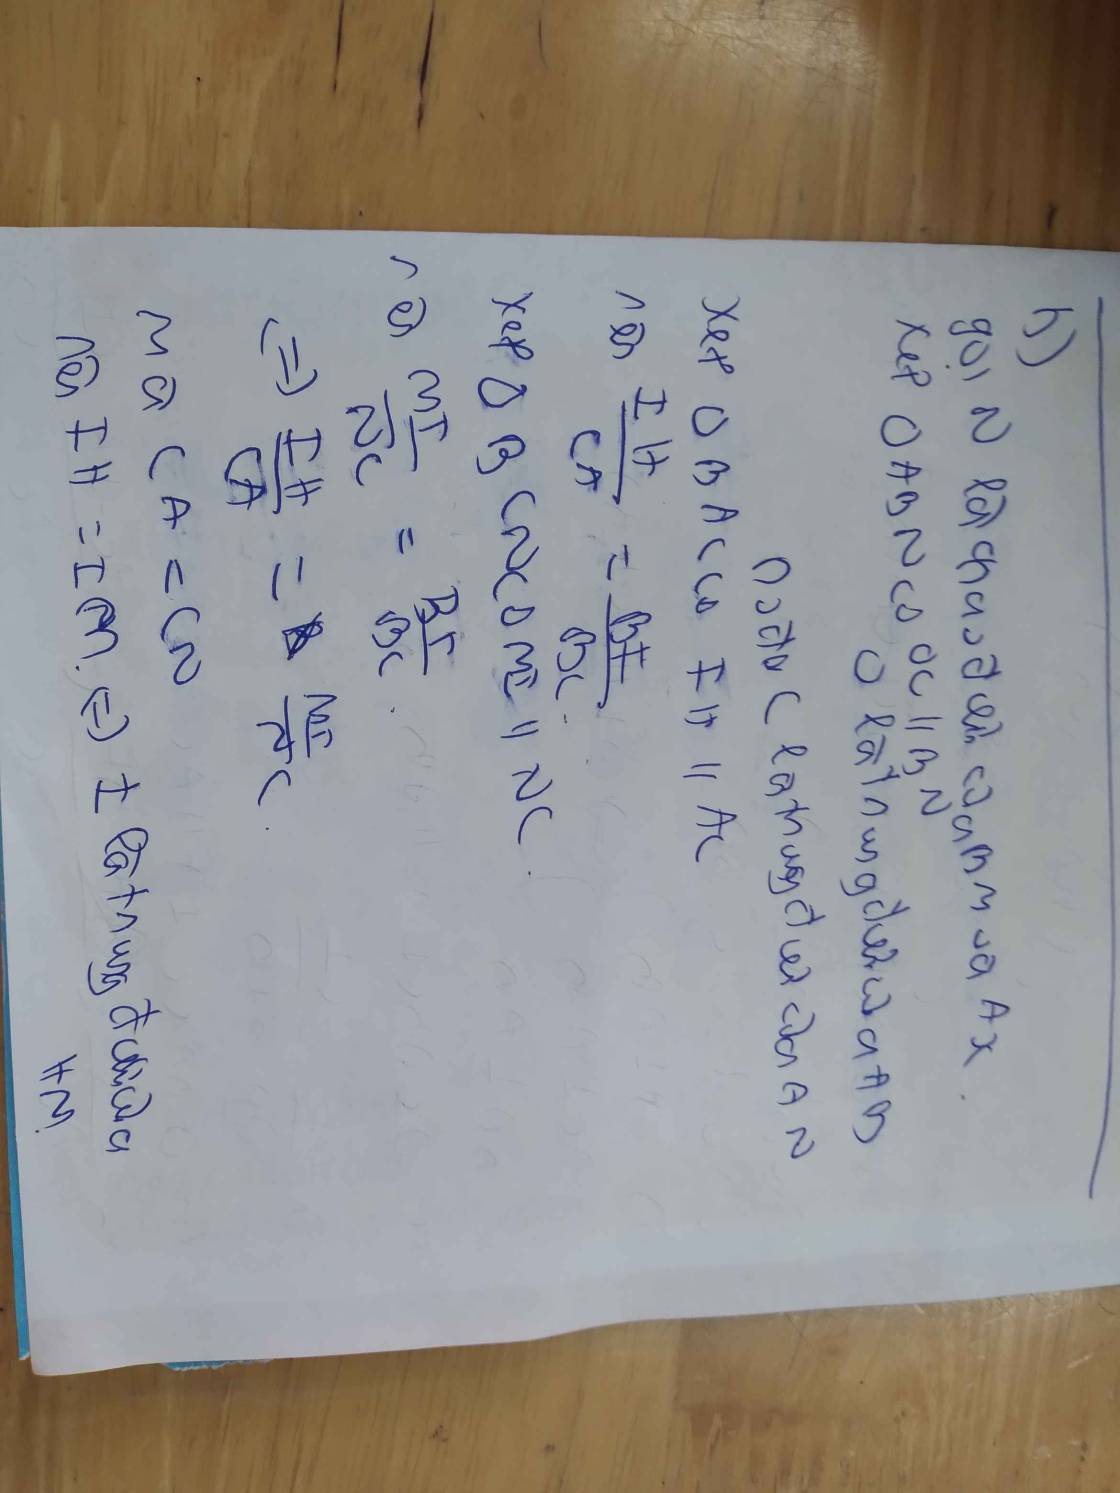 b)
gọi N là giao điểm của BM và Ax.
xét △ABN có OC // BN
O là trung điểm của AB
Do đó C là trung điểm của AN
xét △BAC có IH // AC
nên IH/CA = BI/BC.
xét △BCN có MI // NC.
nên MI/NC = BI/BC.
=> IH/CA = MI/NC.
Mà CA = CN
nên IH = IM. => I là trung điểm của
HM.